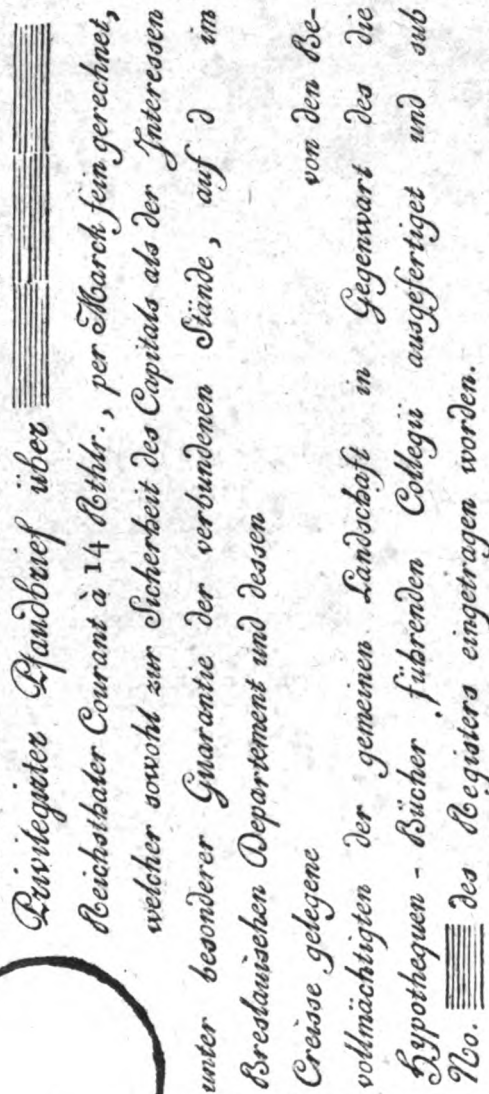 Privilegirter Pfandbrief über
Reichsthaler Courant à 14 Rthlr., per March fein gerechnet,
welcher sowohl zur Sicherheit des Capitals als der Interessen
unter besonderer Guarantie der verbundenen Stände, auf d im
Breslauischen Departement und dessen
Creisse gelegene von den Be-
vollmächtigten der gemeinen Landschaft in Gegenwart des die
Hypothequen-Bücher führenden Collegii ausgefertiget und sub
No. des Registers eingetragen worden.